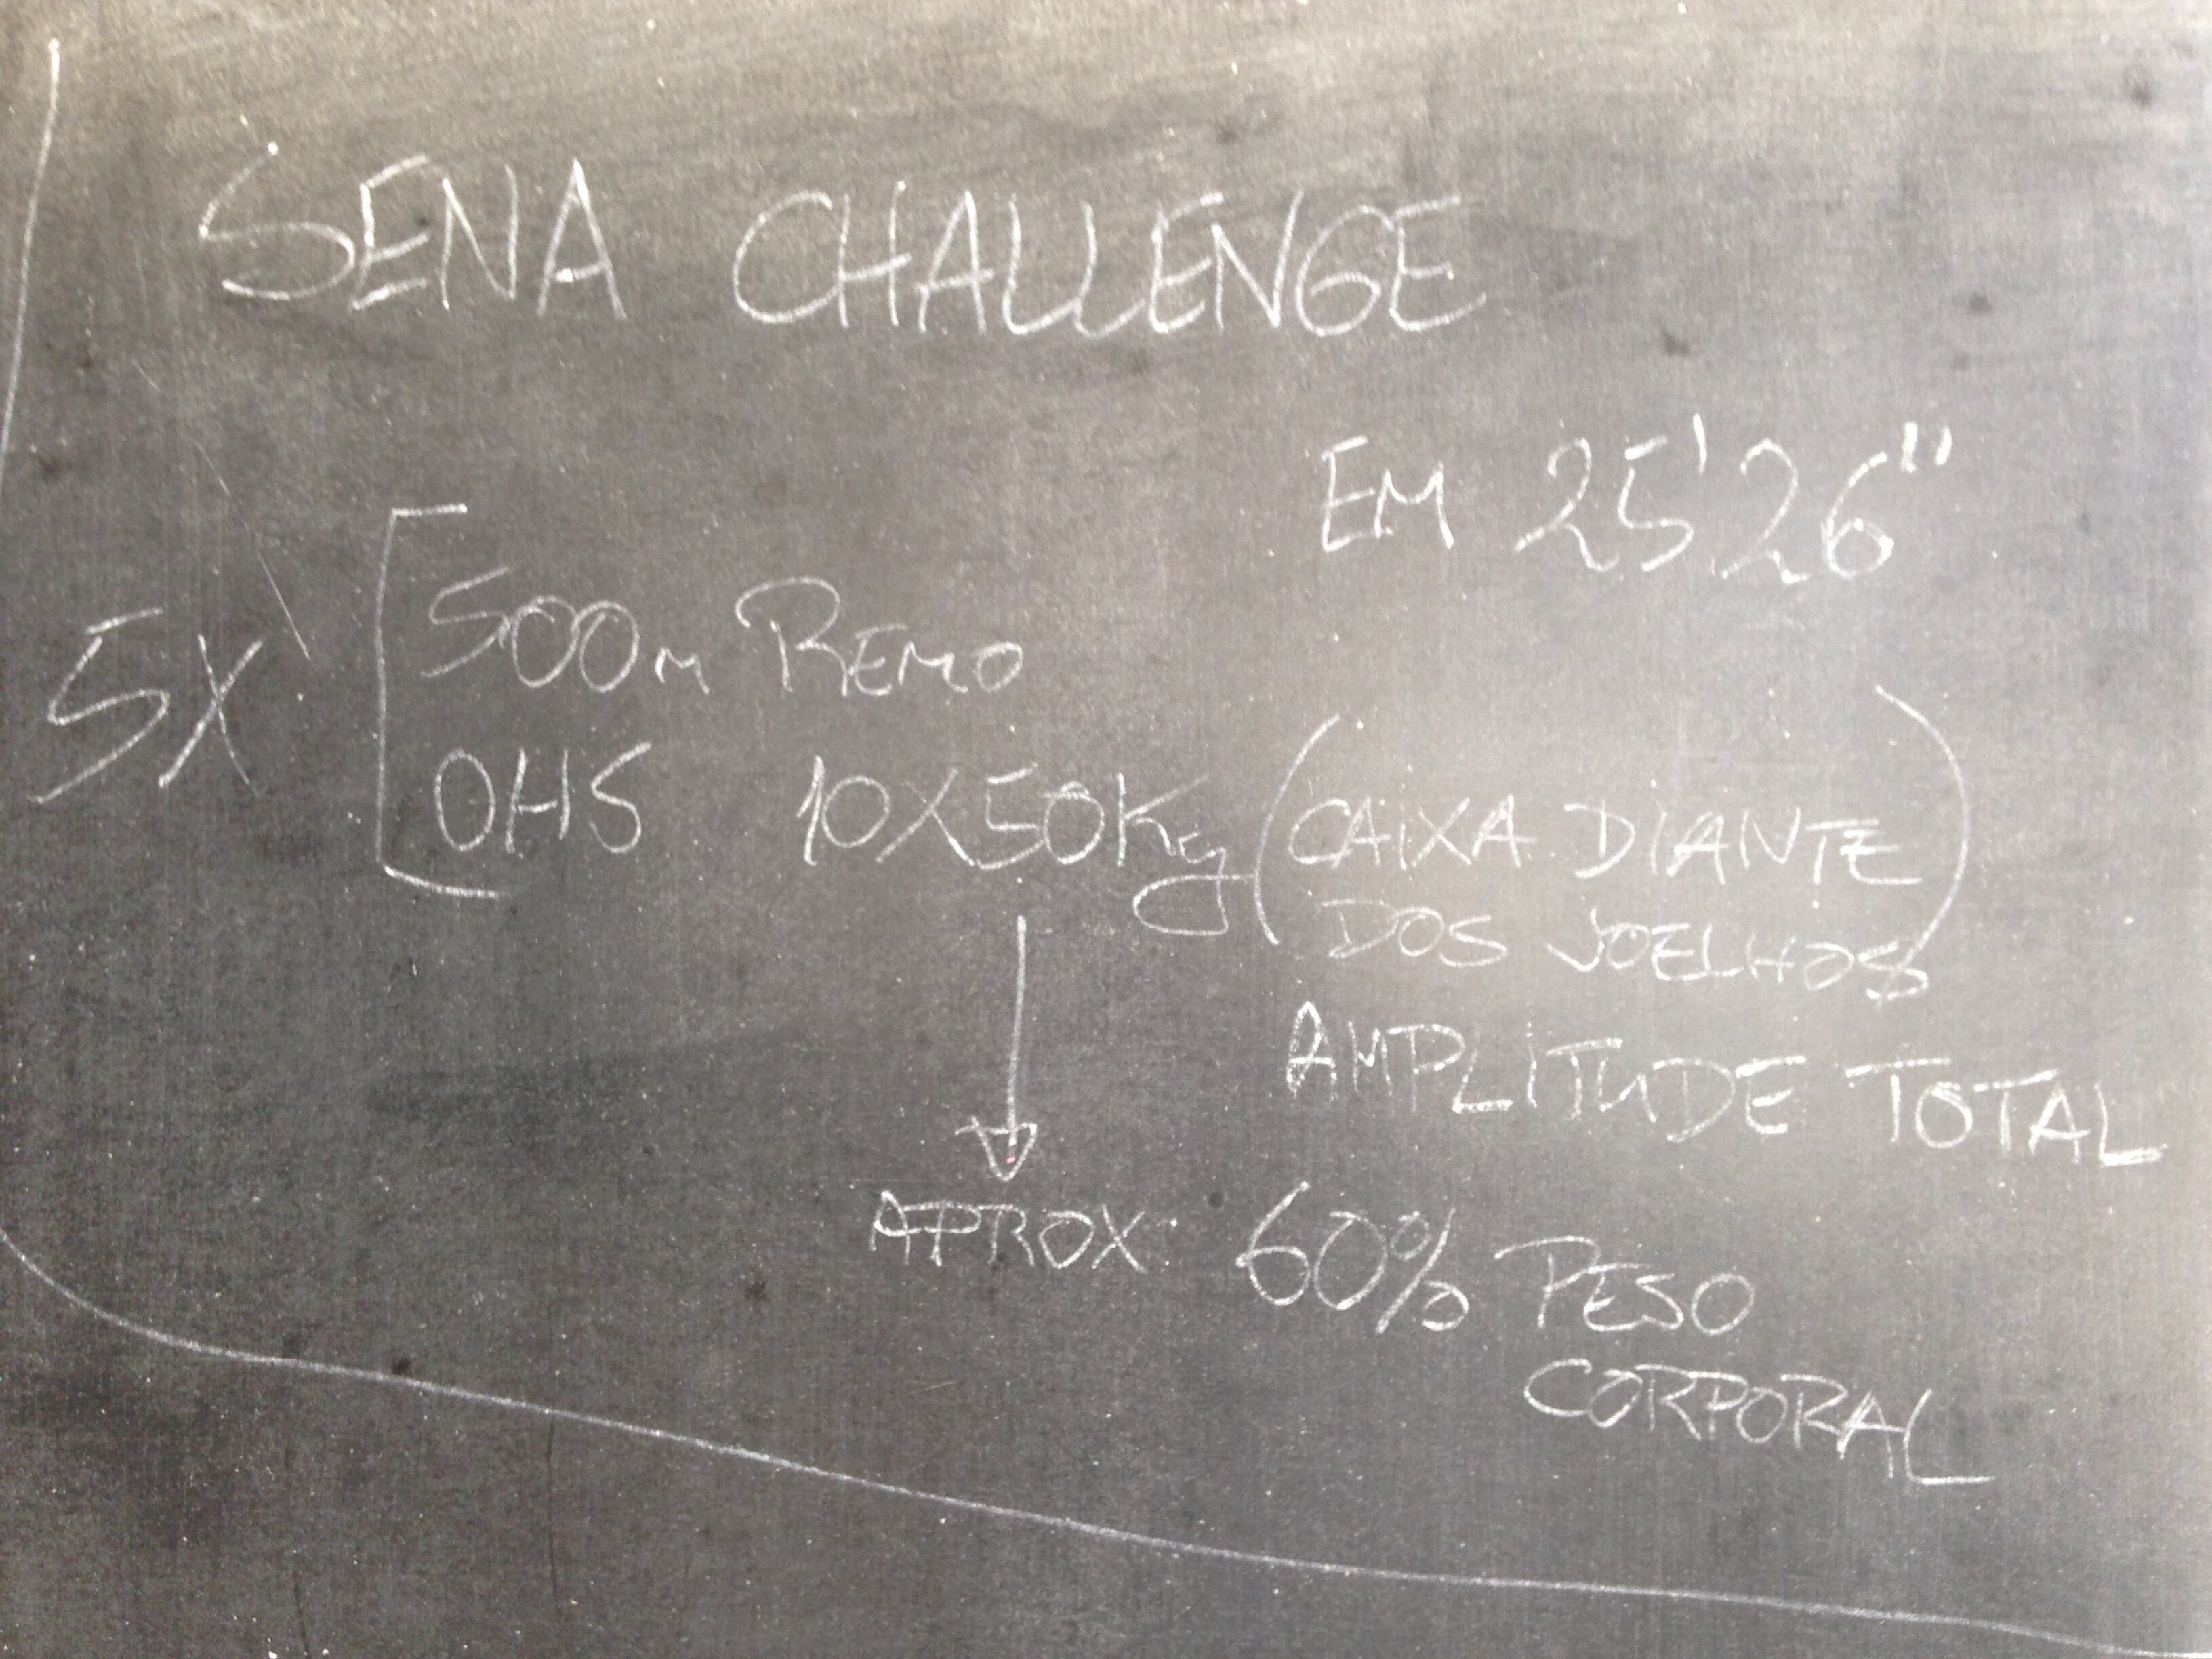 SENA CHALLENGE
EM 25'26"
5X
500m REMO
OHS 10X50Kg (CAIXA DIANTE
DOS JOELHOS)
AMPLITUDE TOTAL
APROX. 60% PESO
CORPORAL